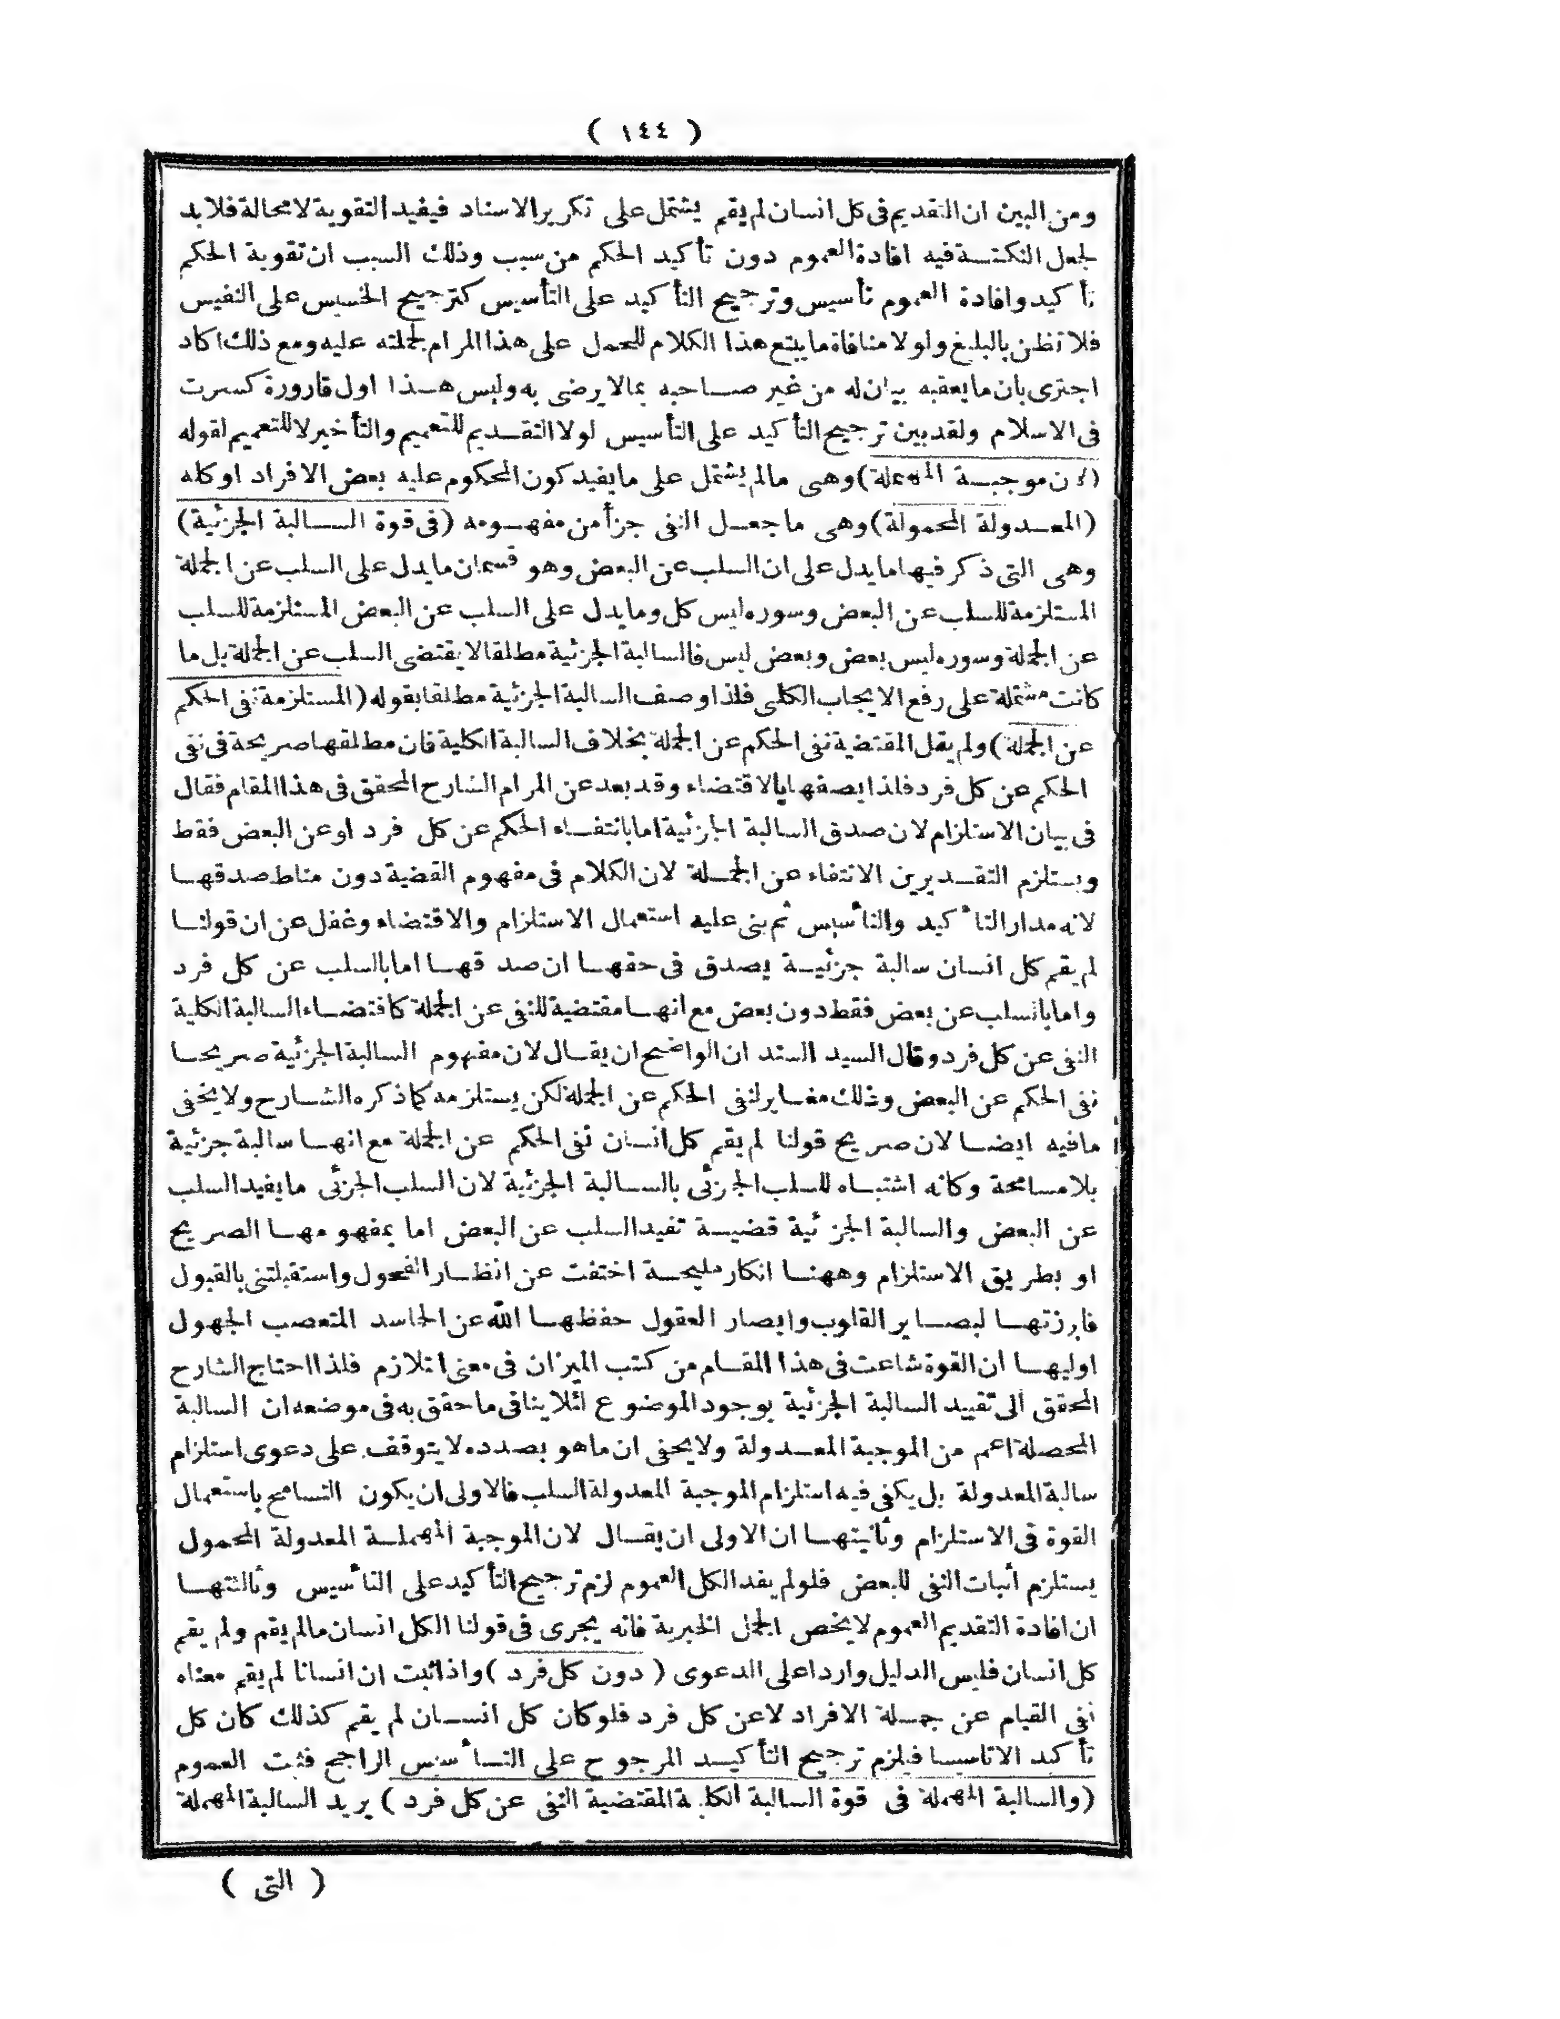 ( ١٤٤ )
ومن البين ان التقديم فى كل انسان لم يقم يشتمل على تكرير الاسناد فيفيد التقوية لا محالة فلا بد
لجعل النكتة فيه افادة العموم دون تأكيد الحكم من سبب وذلك السبب ان تقوية الحكم
تأكيد وافادة العموم تأسيس وترجيح التأكيد على التأسيس كترجيح الخسيس على النفيس
فلا تظن بالبليغ ولولا منافاة ما يتبع هذا الكلام للحمل على هذا المرام لحملته عليه ومع ذلك اكاد
اجترى بان ما يعقبه بيان له من غير صاحبه بما لا يرضى به وليس هذا اول قارورة كسرت
فى الاسلام ولقد بين ترجيح التأكيد على التأسيس لولا التقديم للتعميم والتأخير لا للتعميم لقوله
(لان موجبة المهملة) وهى مالم يشتمل على ما يفيد كون المحكوم عليه بعض الافراد او كله
(المعدولة المحمولة) وهى ما جعل النفى جزأ من مفهومه (فى قوة السالبة الجزئية)
وهى التى ذكر فيها ما يدل على ان السلب عن البعض وهو قسمان ما يدل على السلب عن الجملة
المستلزمة للسلب عن البعض وسوره ليس كل وما يدل على السلب عن البعض المستلزمة للسلب
عن الجملة وسوره ليس بعض وبعض ليس فالسالبة الجزئية مطلقا لا يقتضى السلب عن الجملة بل ما
كانت مشتملة على رفع الايجاب الكلى فلذا وصف السالبة الجزئية مطلقا بقوله (المستلزمة نفى الحكم
عن الجملة) ولم يقل المقتضية نفى الحكم عن الجملة بخلاف السالبة الكلية فان مطلقها صريحة فى نفى
الحكم عن كل فرد فلذا يصفها بالاقتضاء وقد بعد عن المرام الشارح المحقق فى هذا المقام فقال
فى بيان الاستلزام لان صدق السالبة الجزئية اما بانتفاء الحكم عن كل فرد او عن البعض فقط
ويستلزم التقديرين الانتفاء عن الجملة لان الكلام فى مفهوم القضية دون مناط صدقها
لانه مدار التأكيد والتأسيس ثم بنى عليه استعمال الاستلزام والاقتضاء وغفل عن ان قولنا
لم يقم كل انسان سالبة جزئية يصدق فى حقها ان صدقها اما بالسلب عن كل فرد
واما بالسلب عن بعض فقط دون بعض مع انها مقتضية للنفى عن الجملة كاقتضاء السالبة الكلية
النفى عن كل فرد وقال السيد السند ان الواضح ان يقال لان مفهوم السالبة الجزئية صريحا
نفى الحكم عن البعض وذلك مغاير لنفى الحكم عن الجملة لكن يستلزمه كما ذكره الشارح ولا يخفى
ما فيه ايضا لان صريح قولنا لم يقم كل انسان نفى الحكم عن الجملة مع انها سالبة جزئية
بلا مسامحة وكانه اشتباه للسلب الجزئى بالسالبة الجزئية لان السلب الجزئى ما يفيد السلب
عن البعض والسالبة الجزئية قضية تفيد السلب عن البعض اما بمفهومها الصريح
او بطريق الاستلزام وههنا انكار مليحة اختفت عن انظار الفحول واستقبلتنى بالقبول
فابرزتها لبصاير القلوب وابصار العقول حفظها الله عن الحاسد المتعصب الجهول
اوليها ان القوة شاعت فى هذا المقام من كتب الميزان فى معنى التلازم فلذا احتاج الشارح
المحقق الى تقييد السالبة الجزئية بوجود الموضوع لئلا ينافى ما حقق به فى موضعه ان السالبة
المحصلة اعم من الموجبة المعدولة ولا يخفى ان ما هو بصدده لا يتوقف على دعوى استلزام
سالبة المعدولة بل يكفى فيه استلزام الموجبة المعدولة السلب فالاولى ان يكون التسامح باستعمال
القوة فى الاستلزام وثانيتها ان الاولى ان يقال لان الموجبة المهملة المعدولة المحمول
يستلزم اثبات النفى للبعض فلو لم يفد الكل العموم لزم ترجيح التأكيد على التأسيس وثالثتها
ان افادة التقديم العموم لا يخص الجمل الخبرية فانه يجرى فى قولنا الكل انسان مالم يقم ولم يقم
كل انسان فليس الدليل واردا على الدعوى ( دون كل فرد ) واذا ثبت ان انسانا لم يقم معناه
نفى القيام عن جملة الافراد لا عن كل فرد فلو كان كل انسان لم يقم كذلك كان كل
تأكيد الا تاسيسا فيلزم ترجيح التأكيد المرجوح على التأسيس الراجح فثبت العموم
(والسالبة المهملة فى قوة السالبة الكلية المقتضية النفى عن كل فرد ) يريد السالبة المهملة
( التى )